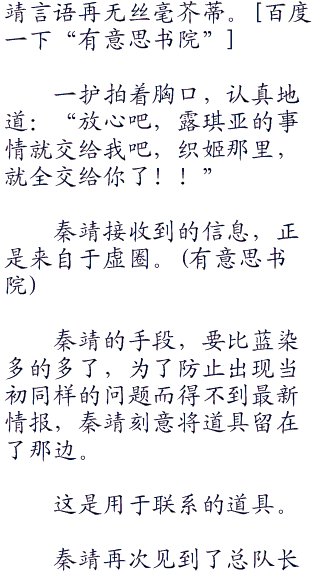 靖言语再无丝毫芥蒂。[百度
一下“有意思书院”]
一护拍着胸口，认真地
道：“放心吧，露琪亚的事
情就交给我吧，织姬那里，
就全交给你了！！”
秦靖接收到的信息，正
是来自于虚圈。(有意思书
院)
秦靖的手段，要比蓝染
多的多了，为了防止出现当
初同样的问题而得不到最新
情报，秦靖刻意将道具留在
了那边。
这是用于联系的道具。
秦靖再次见到了总队长